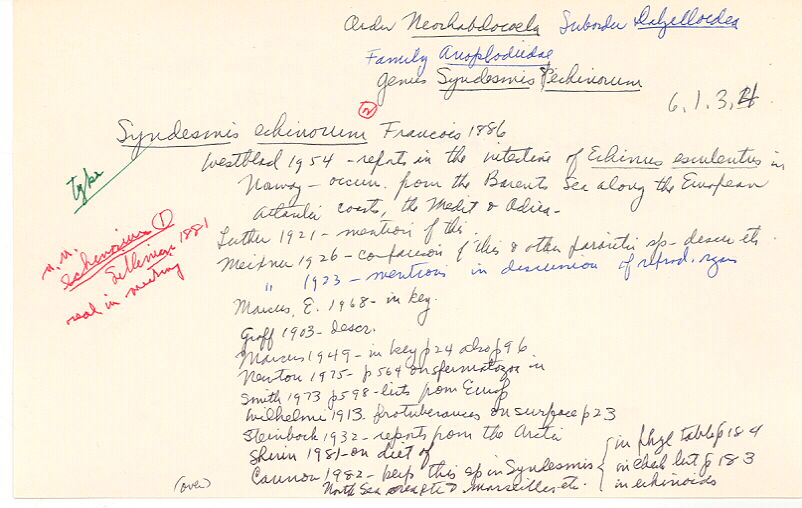 Order Neorhabdocoela Suborder Dalyellioidea
Family Anoplodiidae
genus Syndesmis echinorum
6.1.3.4
2
Syndesmis echinorum Francois 1886
type
Westblad 1954 - reports in the intestine of Echinus esculentus in
Norway - occurr. from the Barents Sea along the European
Atlantic coasts, the Medit & Adria-
Luther 1921 - mention of this
n.n.
echinorum 1
Silliman 1881
read in meeting
Meixner 1926 - comparison of this & other parasitic sp - descr etc
" 1923 - mentions in discussion of reprod. organs
Marcus, E. 1968 - in key.
Graff 1903 - descr.
Marcus 1949 - in key p 24 also p 96
Newton 1975 - p 564 on spermatozoa in
Smith 1973 p 598 - lists from Europ
Wilhelmi 1913. protuberances on surface p 23
Steinbock 1932 - reports from the Arctic
Shinn 1981 - on diet of
Cannon 1982 - keep this sp in Syndesmis { in phyl table p 184
in check list p 183
in echinoids
North Sea Marseilles etc.
(over)